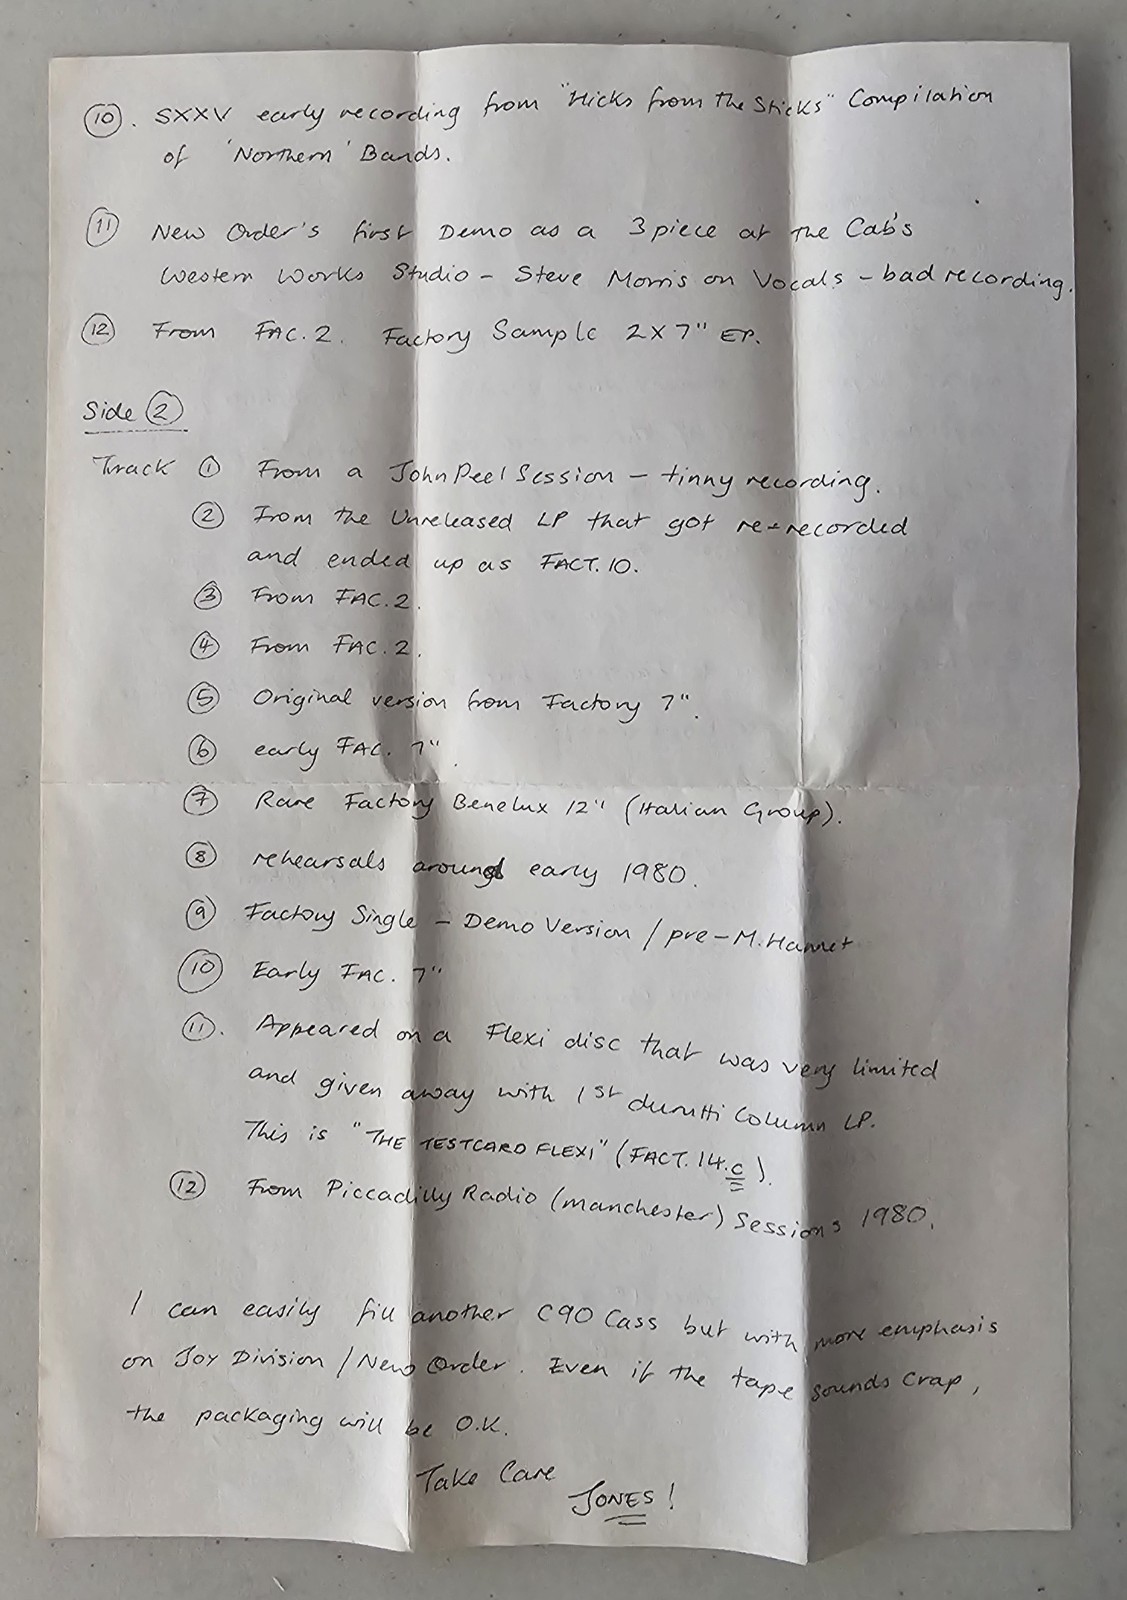 ⑩. SXXV early recording from "Hicks from the Sticks" Compilation
of 'Northern' Bands.
⑪ New Order's first Demo as a 3 piece at the Cab's
Western Works Studio - Steve Morris on Vocals - bad recording.
⑫ From FAC.2. Factory Sample 2X7" EP.
Side ②
Track ① From a John Peel Session - tinny recording.
② From the Unreleased LP that got re-recorded
and ended up as FACT.10.
③ From FAC.2.
④ From FAC.2.
⑤ Original version from Factory 7".
⑥ early FAC. 7".
⑦ Rare Factory Benelux 12" (Italian Group).
⑧ rehearsals around early 1980.
⑨ Factory Single - Demo Version / pre-M.Hannet
⑩ Early FAC. 7"
⑪. Appeared on a Flexi disc that was very limited
and given away with 1st durutti Column LP.
This is "THE TESTCARD FLEXI" (FACT.14.c).
⑫ From Piccadilly Radio (manchester) Sessions 1980.
I can easily fill another C90 Cass but with more emphasis
on Joy Division / New Order. Even if the tape sounds Crap,
the packaging will be O.K.
Take Care
JONES!